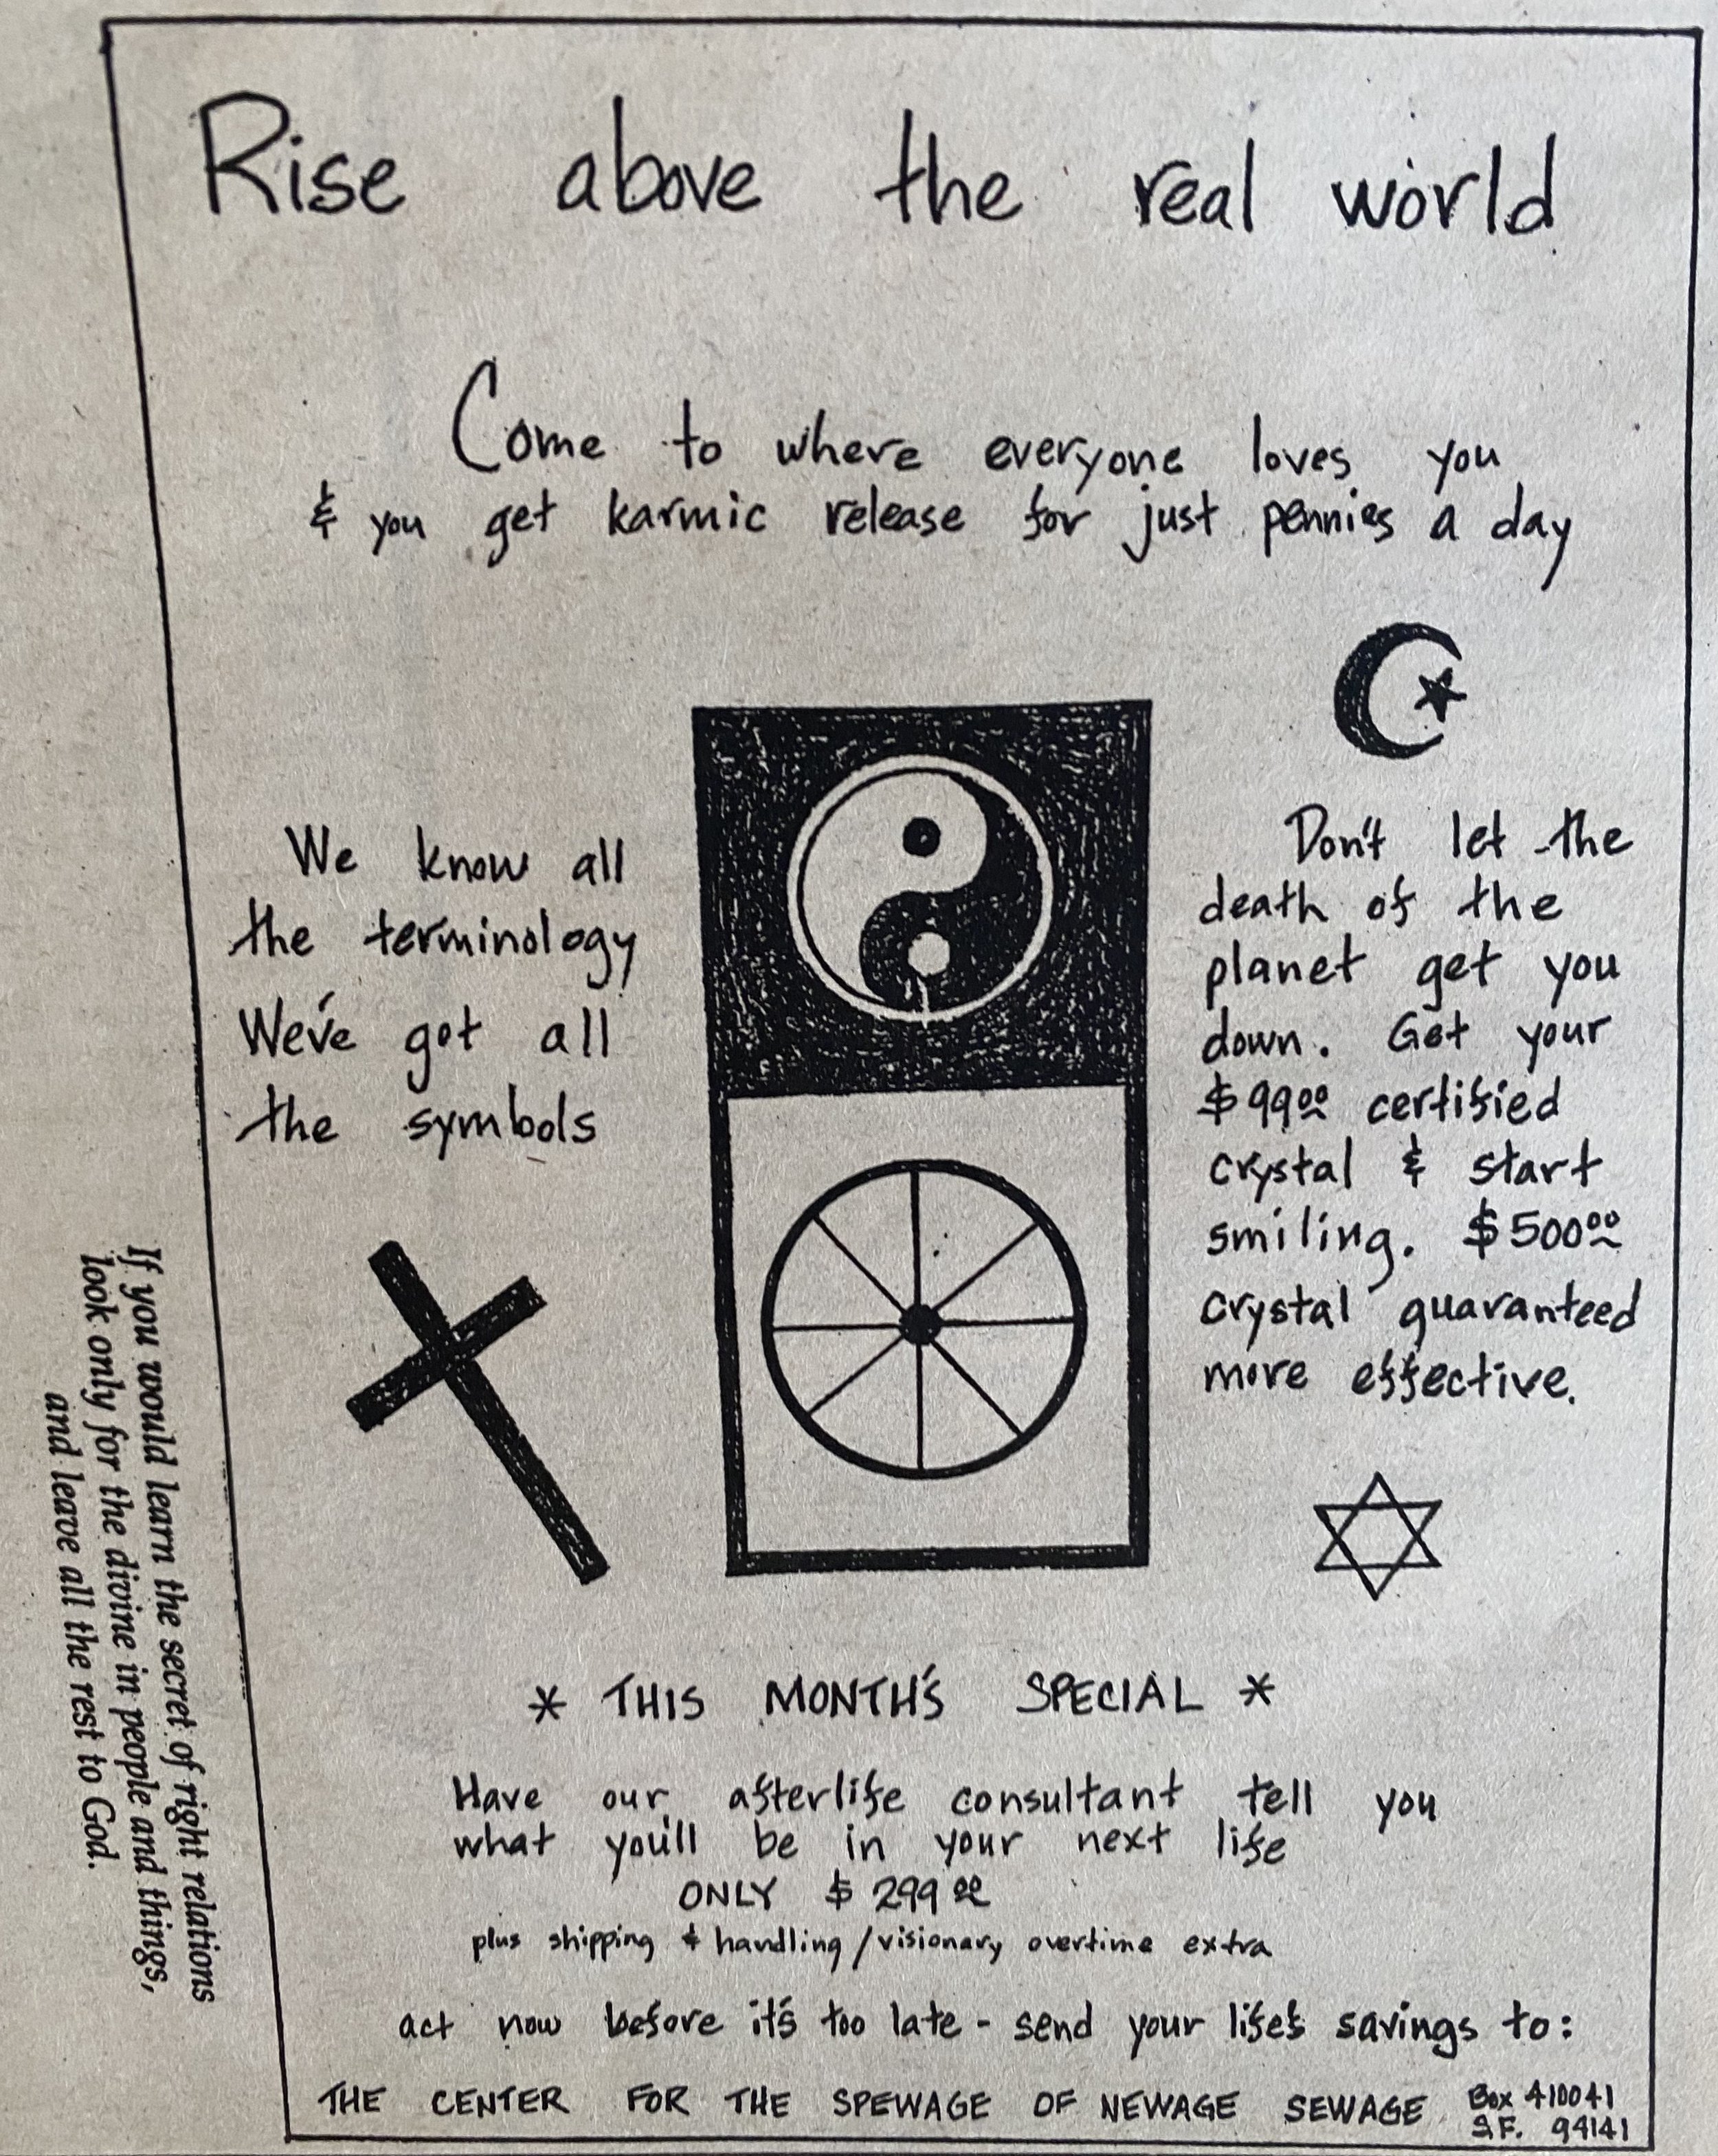 Rise above the real world
Come to where everyone loves you
& you get karmic release for just pennies a day
We know all
the terminology
We've got all
the symbols
Don't let the
death of the
planet get you
down. Get your
$99.00 certified
crystal & start
smiling. $500.00
crystal guaranteed
more effective.
* THIS MONTH'S SPECIAL *
Have our afterlife consultant tell you
what you'll be in your next life
ONLY $299.00
plus shipping & handling/visionary overtime extra
act now before it's too late - send your life's savings to:
THE CENTER FOR THE SPEWAGE OF NEWAGE SEWAGE
Box 410041
S.F. 94141
If you would learn the secret of right relations
look only for the divine in people and things,
and leave all the rest to God.